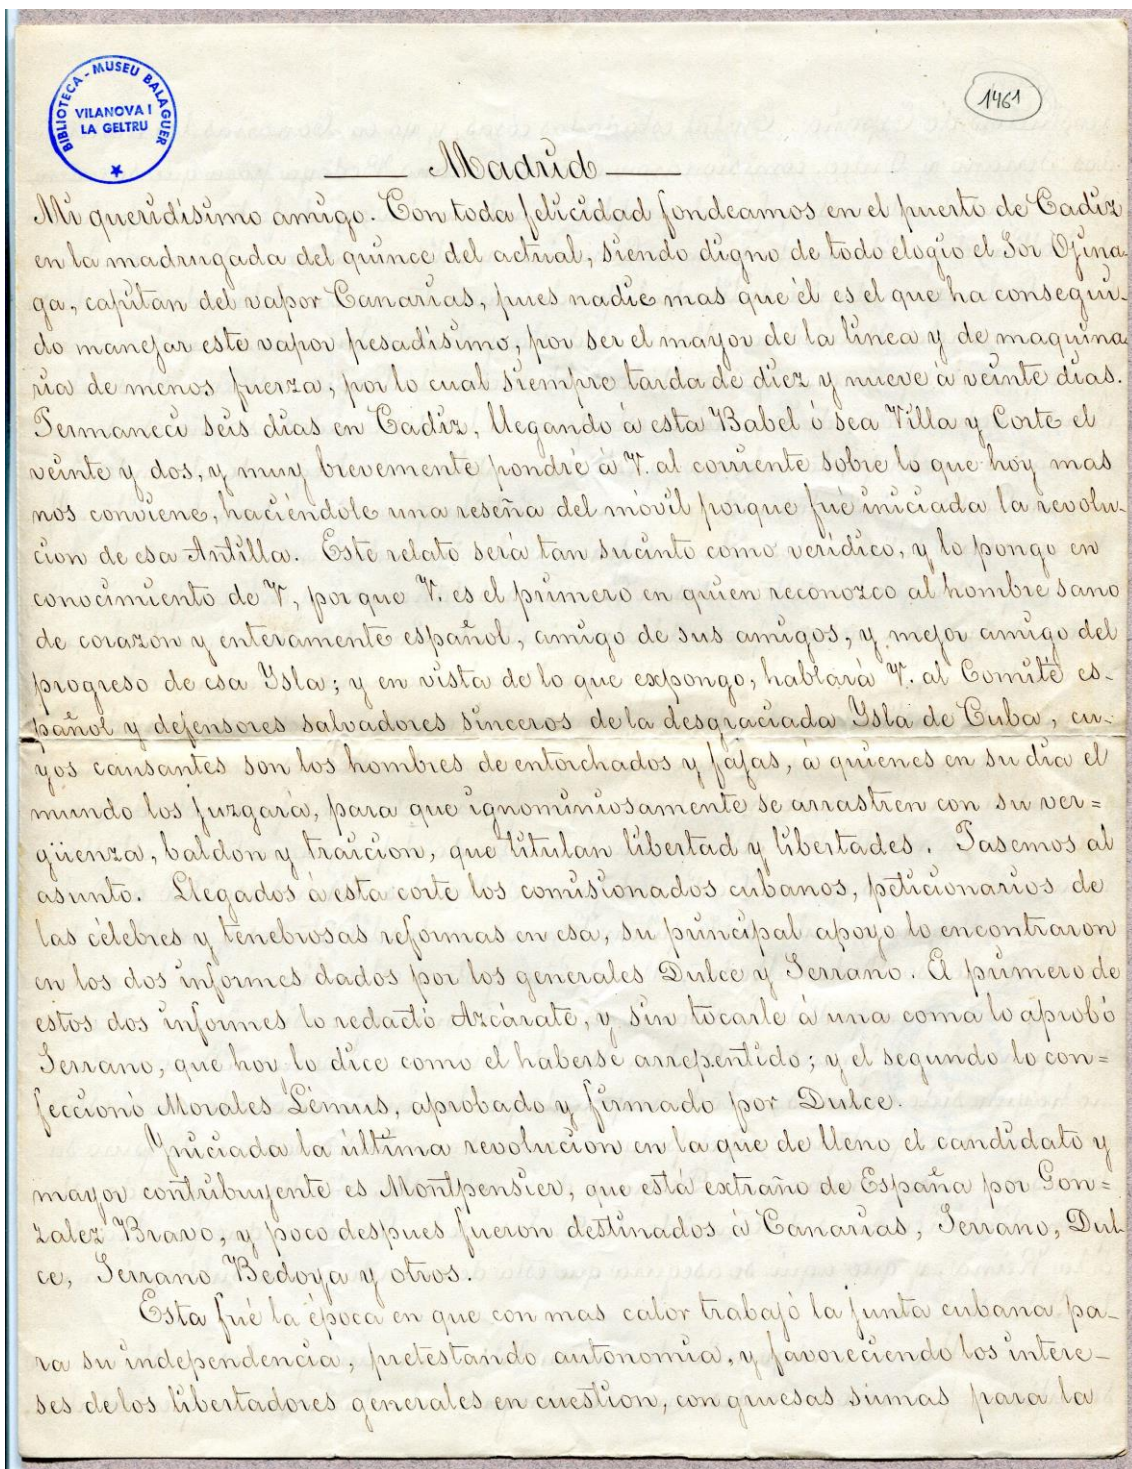 BIBLIOTECA - MUSEU BALAGUER
VILANOVA I
LA GELTRU
1461
Madrid
Mi queridísimo amigo. Con toda felicidad fondeamos en el puerto de Cadiz
en la madrugada del quince del actual, siendo digno de todo elogio el Sor Ojina-
ga, capitan del vapor Canarias, pues nadie mas que él es el que ha consegui-
do manejar este vapor pesadísimo, por ser el mayor de la línea y de maquina-
ria de menos fuerza, por lo cual siempre tarda de diez y nueve á veinte dias.
Permanecí seis dias en Cadiz, llegando á esta Babel ó sea Villa y Corte el
veinte y dos, y muy brevemente pondré á V. al corriente sobre lo que hoy mas
nos conviene, haciéndole una reseña del móvil porque fué iniciada la revolu-
cion de esa Antilla. Este relato será tan sucinto como verídico, y lo pongo en
conocimiento de V, por que V. es el primero en quien reconozco al hombre sano
de corazon y enteramente español, amigo de sus amigos, y mejor amigo del
progreso de esa Ysla; y en vista de lo que expongo, hablará V. al Comité es-
pañol y defensores salvadores sinceros de la desgraciada Ysla de Cuba, cu-
yos causantes son los hombres de entorchados y fajas, á quienes en su dia el
mundo los juzgará, para que ignominiosamente se arrastren con su ver=
güenza, baldon y traicion, que titulan libertad y libertades. Pasemos al
asunto. Llegados á esta corte los comisionados cubanos, peticionarios de
las célebres y tenebrosas reformas en esa, su principal apoyo lo encontraron
en los dos informes dados por los generales Dulce y Serrano. El primero de
estos dos informes lo redactó Azcárate, y sin tocarle á una coma lo aprobó
Serrano, que hoy lo dice como el haberse arrepentido; y el segundo lo con=
feccionó Morales Lémus, aprobado y firmado por Dulce.
Yniciada la última revolucion en la que de lleno el candidato y
mayor contribuyente es Montpensier, que está extraño de España por Gon=
zalez Bravo, y poco despues fueron destinados á Canarias, Serrano, Dul-
ce, Serrano Bedoya y otros.
Esta fué la época en que con mas calor trabajó la junta cubana pa-
ra su independencia, pretestando autonomia, y favoreciendo los intere-
ses de los libertadores generales en cuestion, con gruesas sumas para la